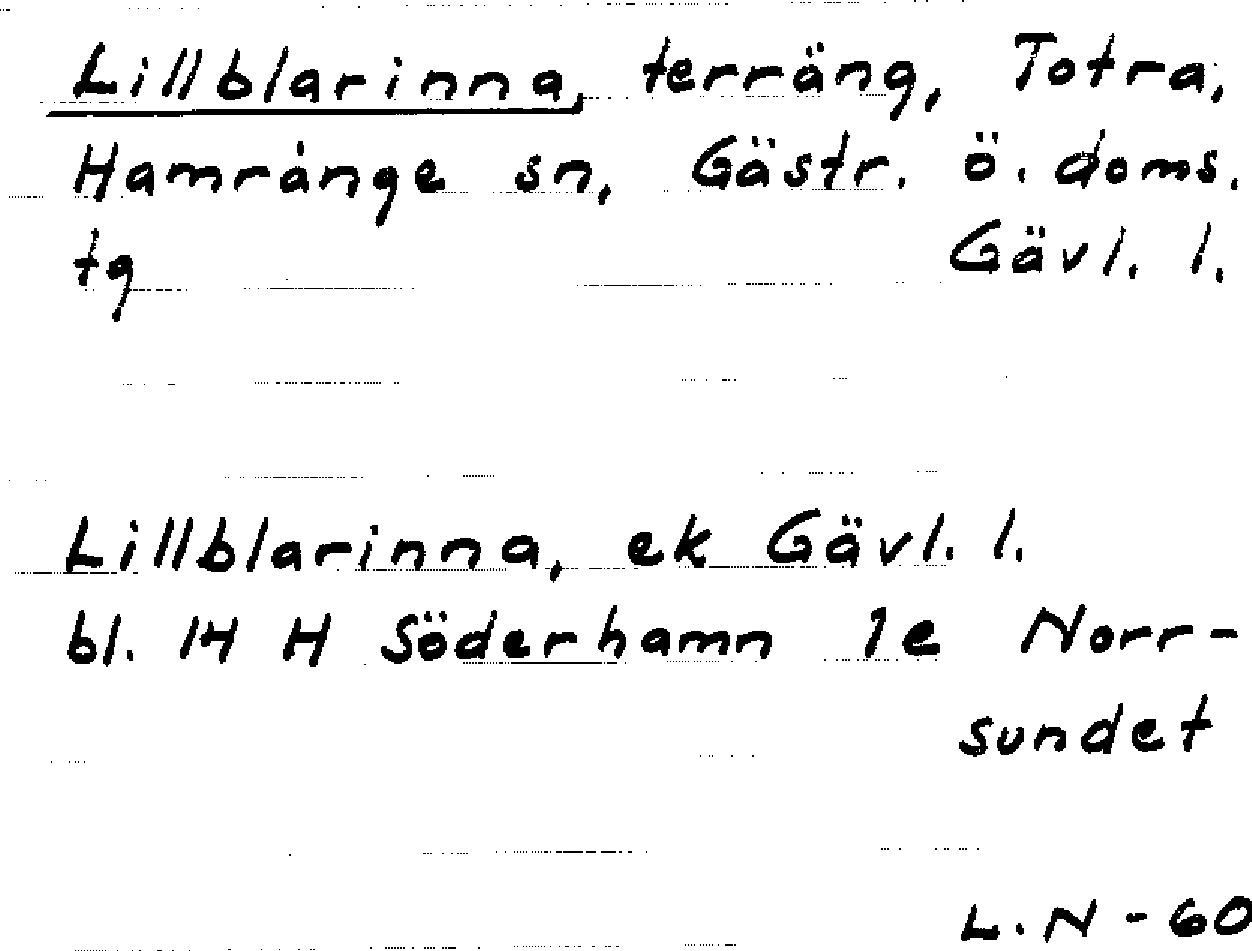 Lillblarinna, terräng, Totra,
Hamrånge sn, Gästr. ö. doms.
tg Gävl. l.
Lillblarinna, ek Gävl. l.
bl. 14 H Söderhamn 1e Norr-
sundet
L.N - 60